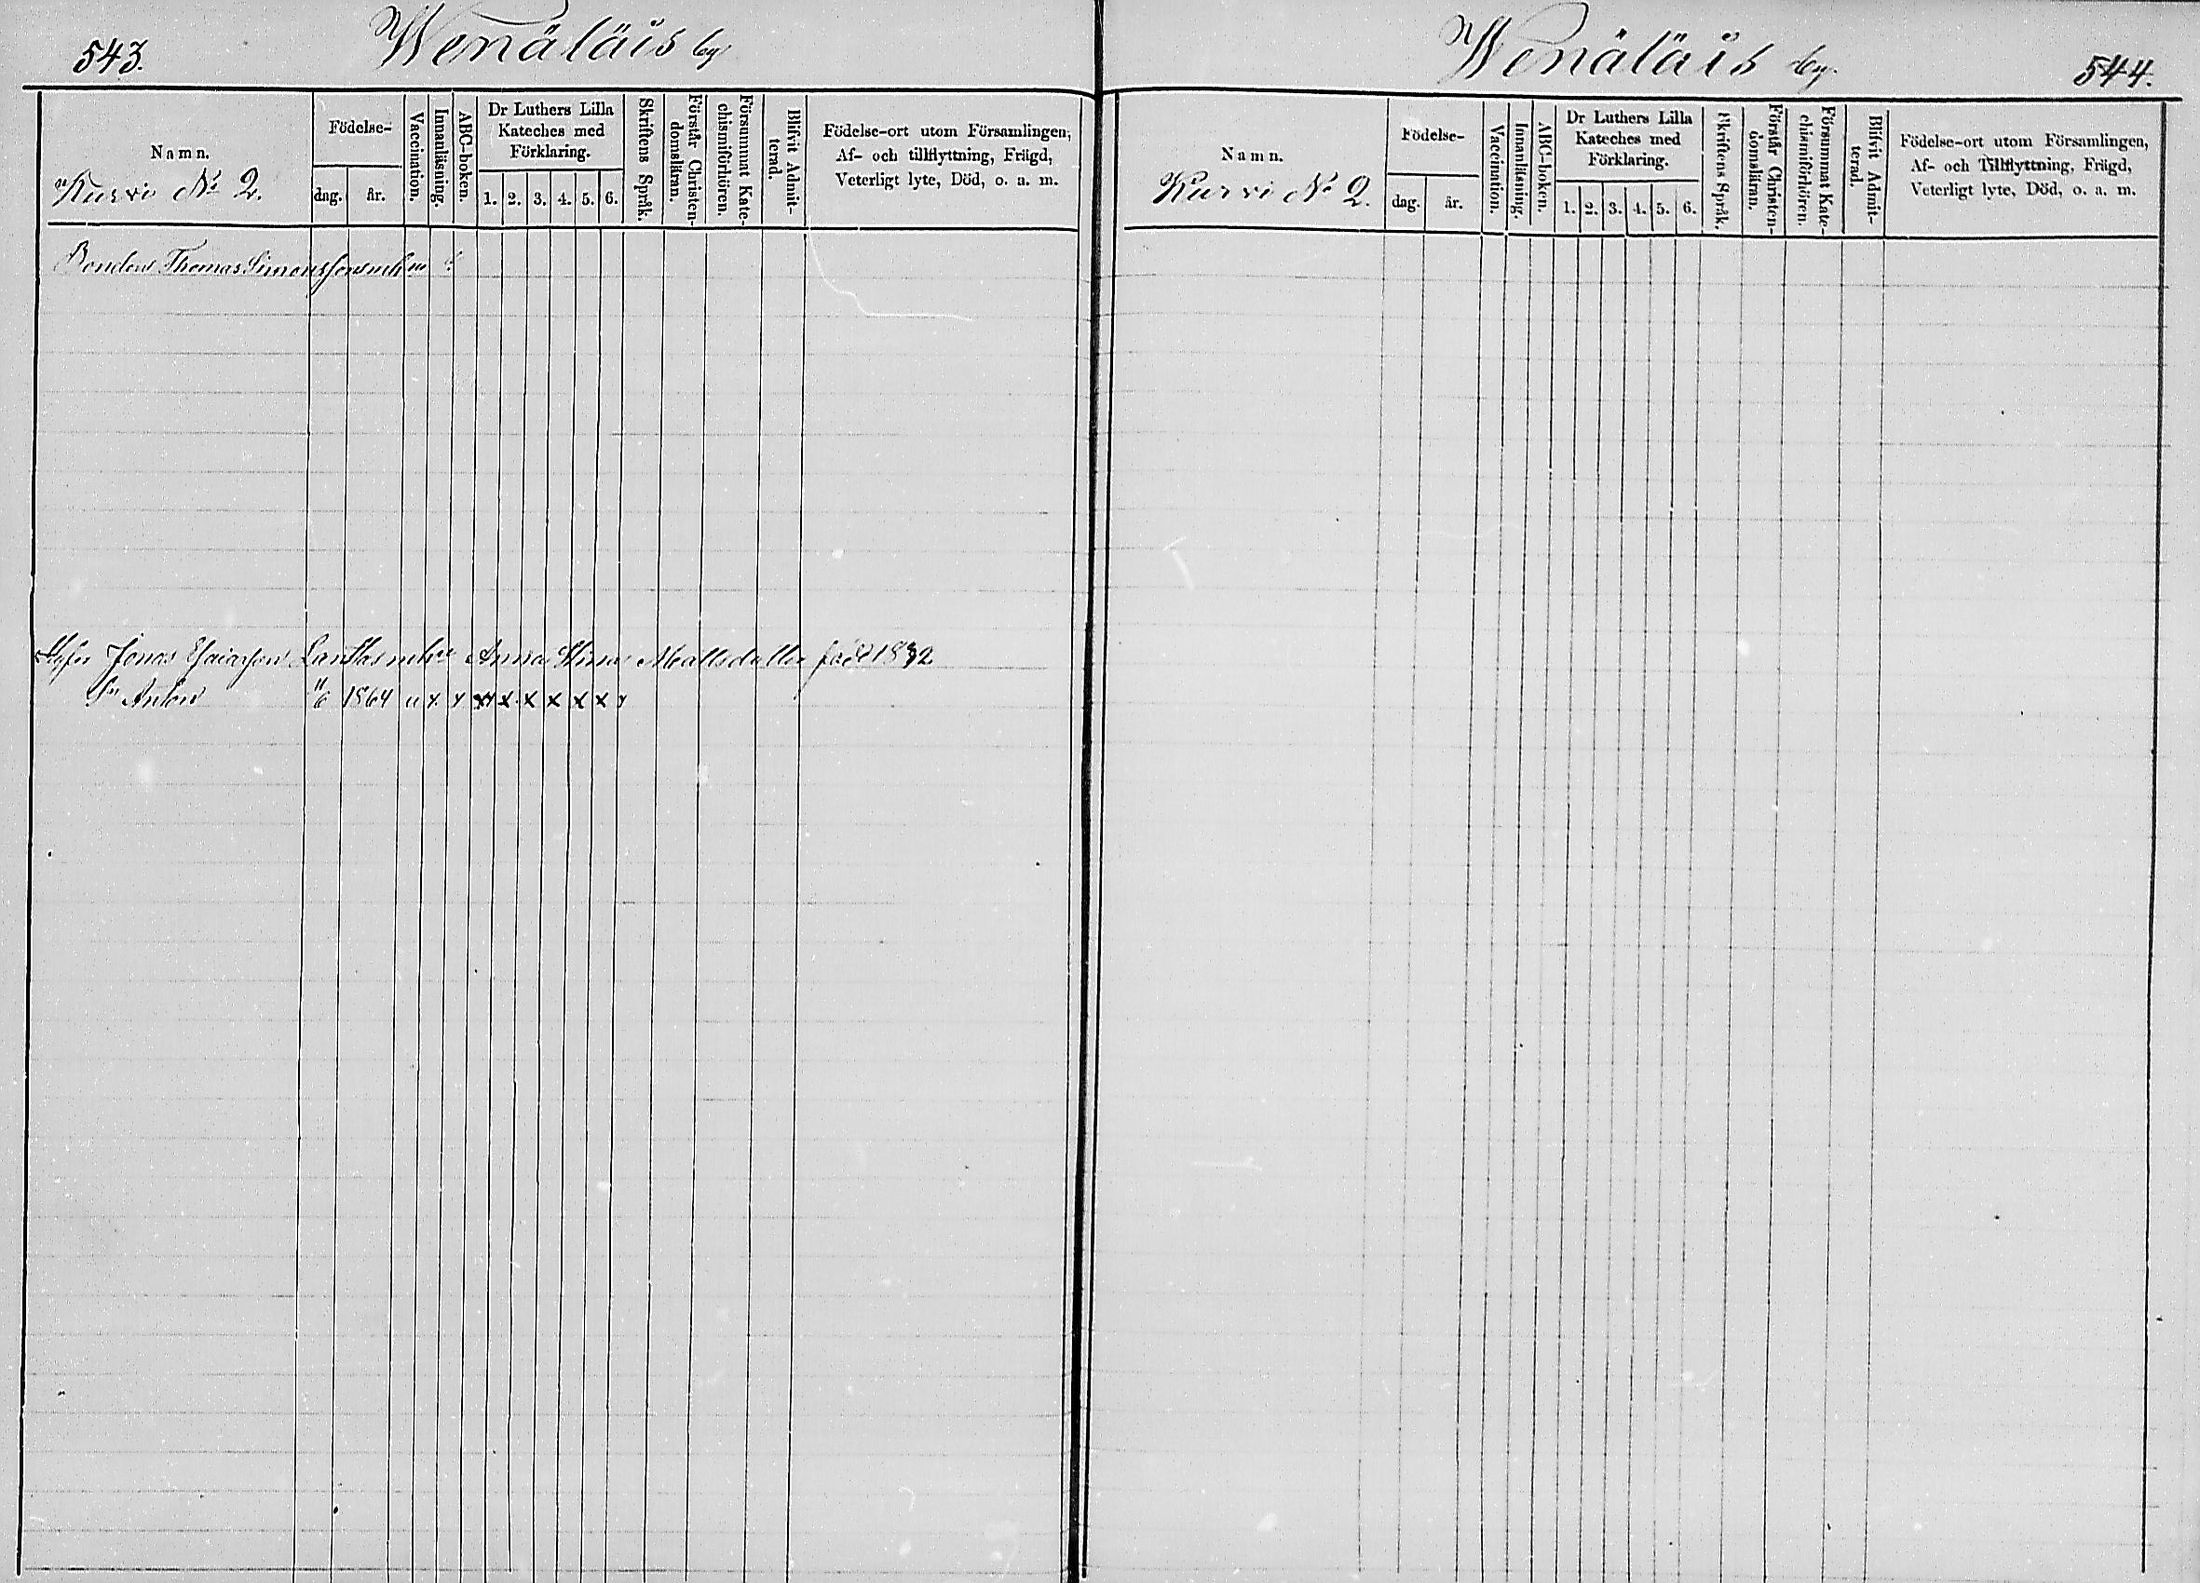 543.
Wenäläis by
Namn.
Kurvi No 2.
Födelse-
dag.
år.
Vaccination.
Innanläsning.
ABC-boken.
Dr Luthers Lilla
Kateches med
Förklaring.
1. 2. 3. 4. 5. 6.
Skriftens Språk.
Förstår Christen-
domsläran.
Försummat Kate-
chismiförhören.
Blifvit Admit-
terad.
Födelse-ort utom Församlingen,
Af- och tillflyttning, Frägd,
Veterligt lyte, Död, o. a. m.
Bonden Thomas Simonsson
Jonas Esaiasson Anna Stina Mattsdotter född 1832
Sn Anton 11/6 1864 u x x x x x x x x
Wenäläis by.
544.
Namn.
Kurvi No 2.
Födelse-
dag.
år.
Vaccination.
Innanläsning.
ABC-boken.
Dr Luthers Lilla
Kateches med
Förklaring.
1. 2. 3. 4. 5. 6.
Skriftens Språk.
Förstår Christen-
domsläran.
Försummat Kate-
chismiförhören.
Blifvit Admit-
terad.
Födelse-ort utom Församlingen,
Af- och Tillflyttning, Frägd,
Veterligt lyte, Död, o. a. m.